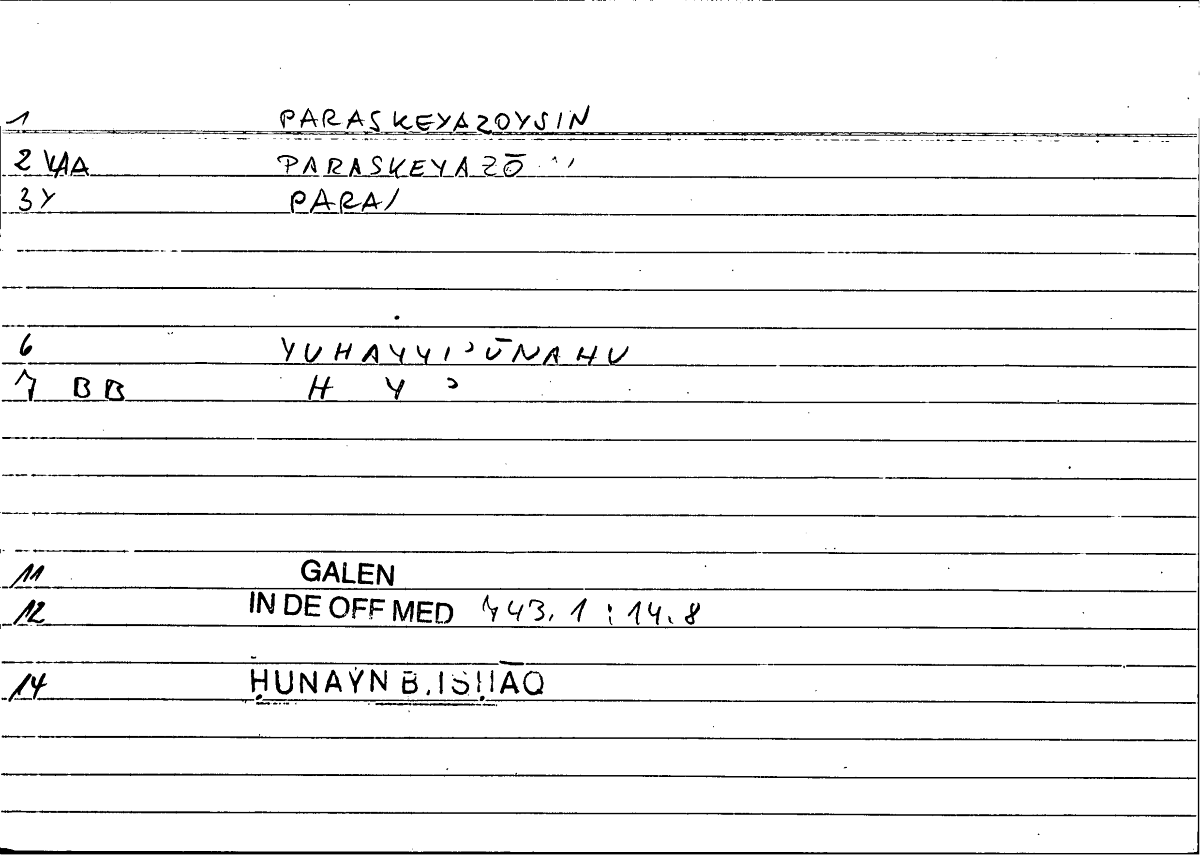 1 PARASKEYAZOYSIN
2 VAA PARASKEYAZŌ
3Y PARA/
6 YUHAYYIʾŪNAHU
7 BB H Y ʾ
11 GALEN
12 IN DE OFF MED 743.1 : 14.8
14 ḤUNAYN B. ISḤĀQ